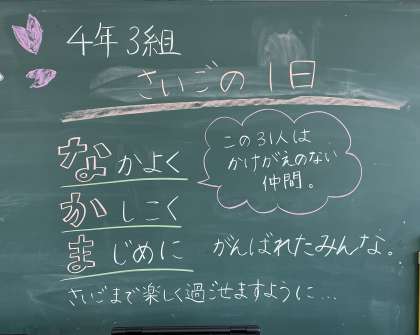 4年3組
さいごの1日
なかよく
この31人は
かけがえのない
仲間。
かしこく
まじめに がんばれたみんな。
さいごまで楽しく過ごせますように…